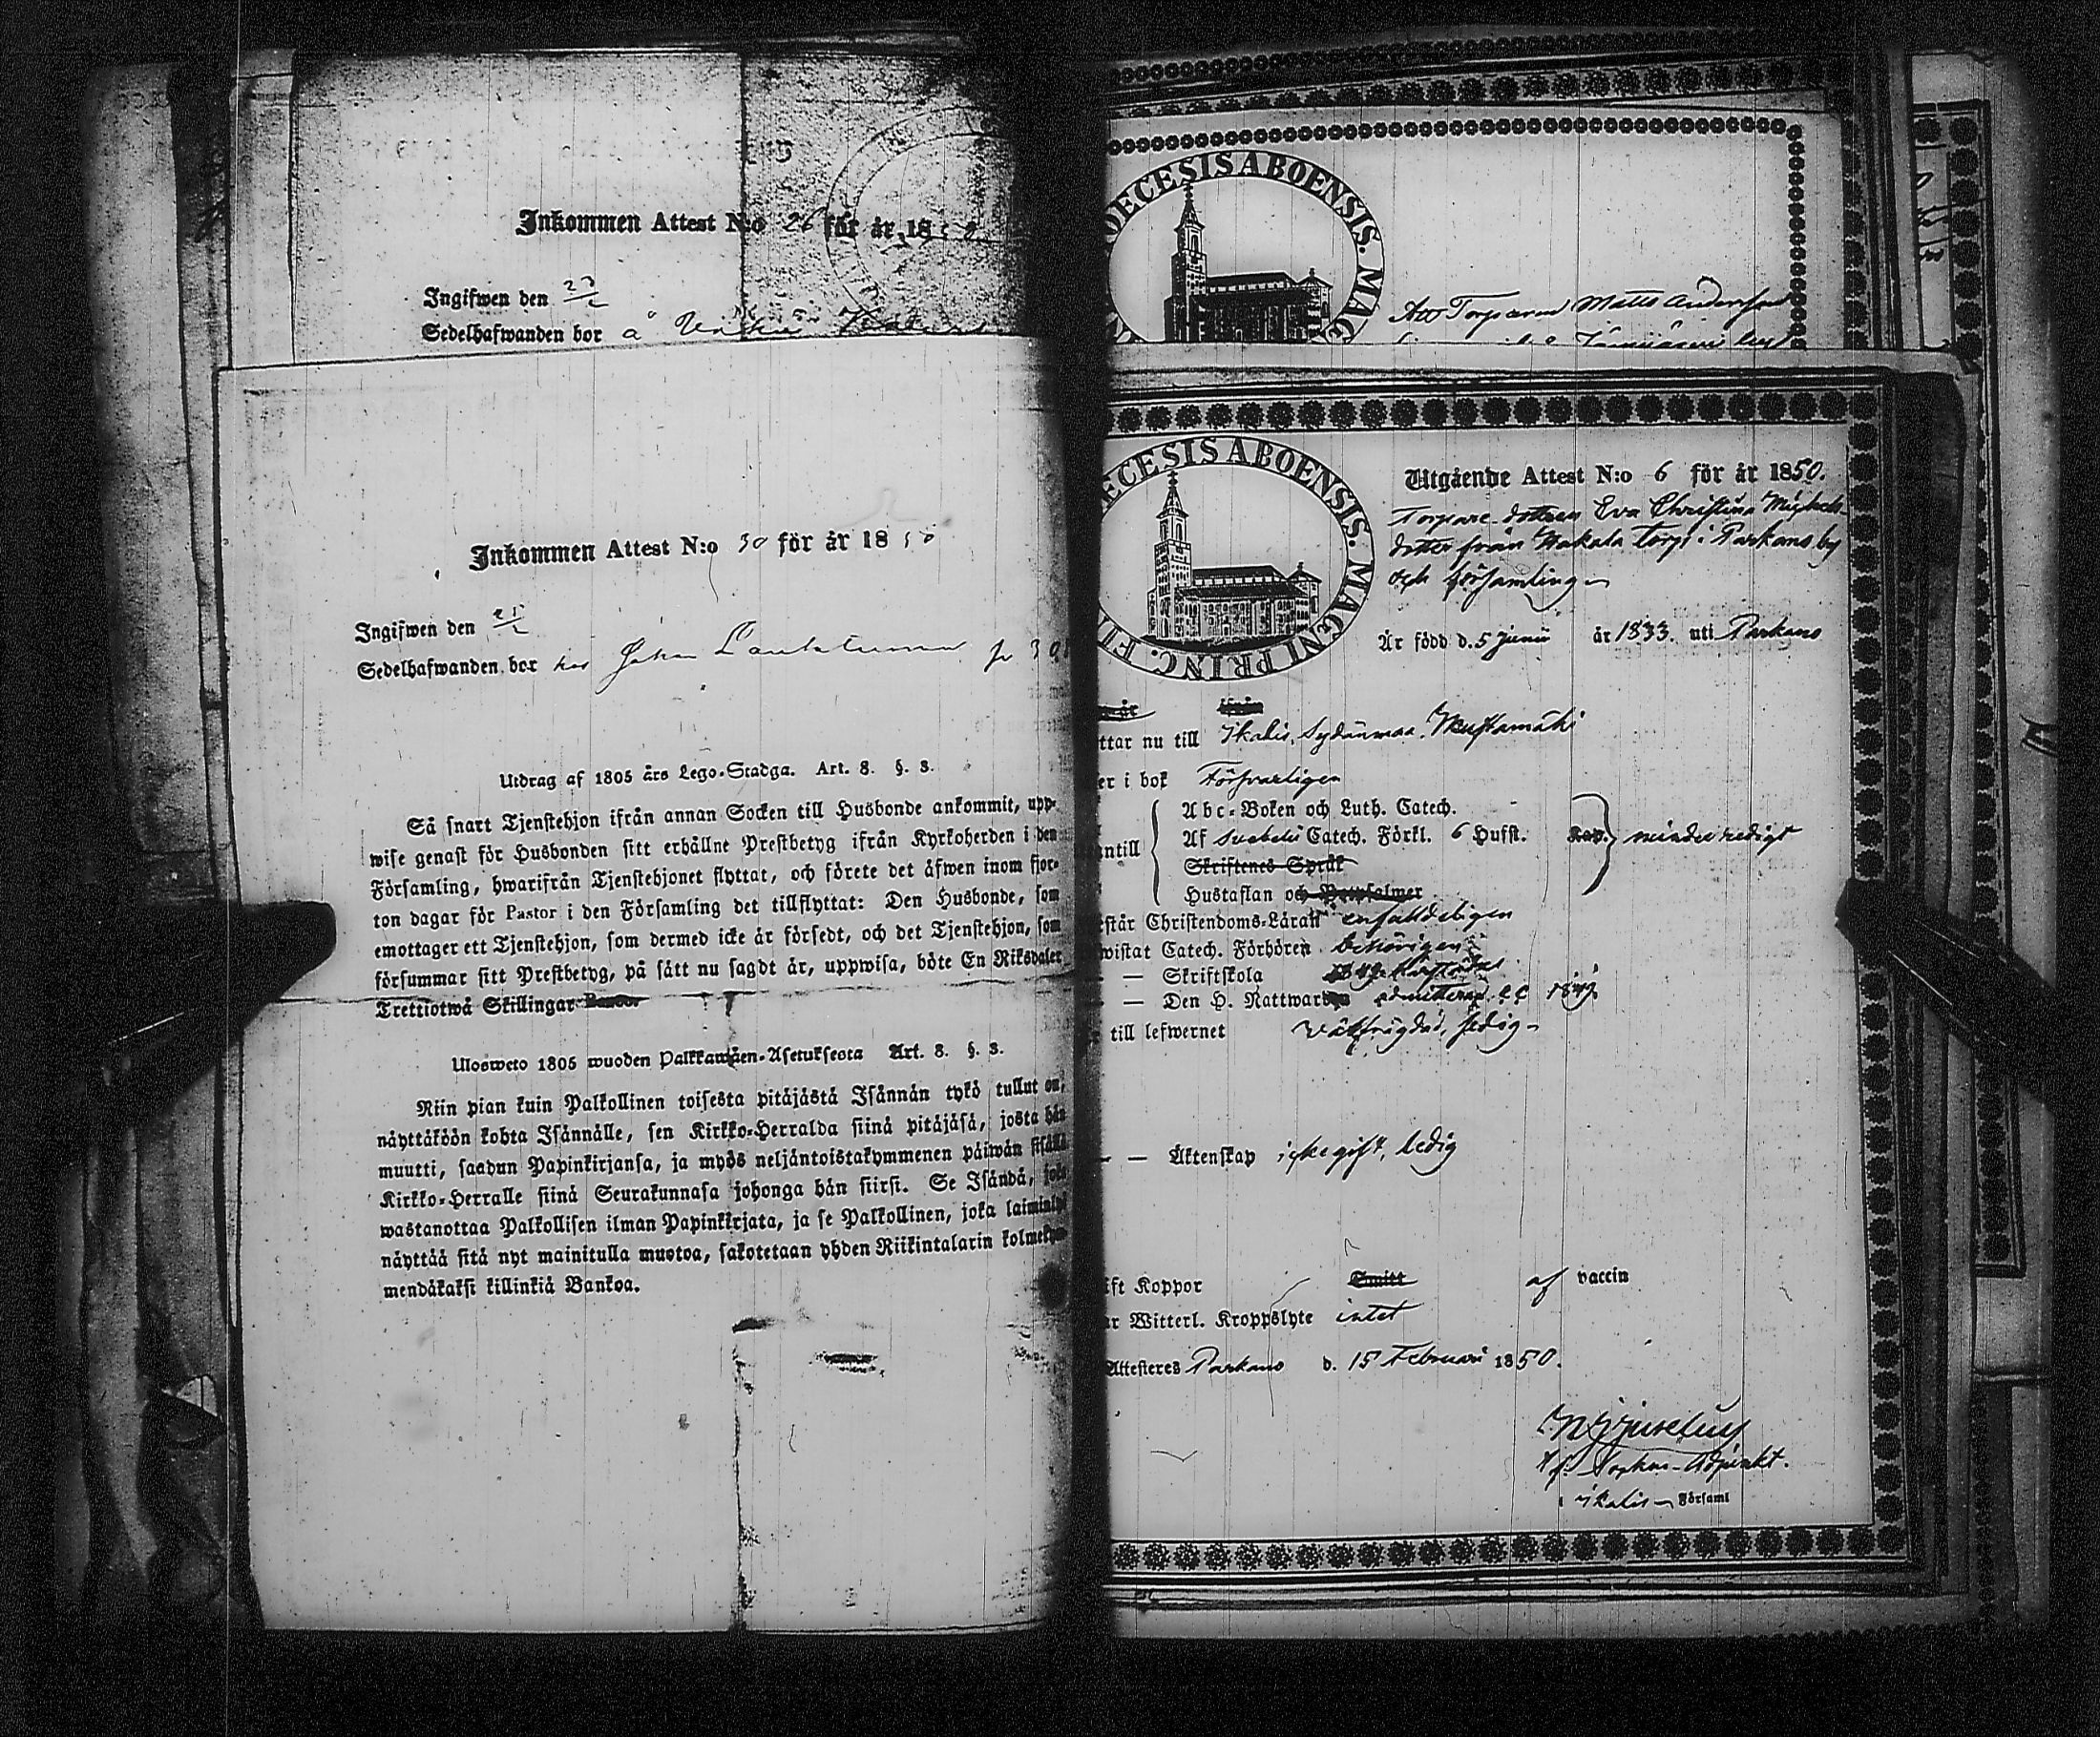 Inkommen Attest N:o 26 för år 18
Ingifwen den
Sedelhafwanden bor å
Inkommen Attest N:o 30 för år 1850
Ingifwen den
Sedelhafwanden bor hos Johan
Utdrag af 1805 års Lego-Stadga. Art. 8. §. 3.
Så snart Tjenstehjon ifrån annan Socken till Husbonde ankommit, upp-
wise genast för Husbonden sitt erhållne Prestbetyg ifrån Kyrkoherden i den
Församling, hwarifrån Tjenstehjonet flyttat, och förete det äfwen inom fjor-
ton dagar för Pastor i den Församling det tillflyttat: Den Husbonde, som
emottager ett Tjenstehjon, som dermed icke är försedt, och det Tjenstehjon, som
försummar sitt Prestbetyg, på sätt nu sagdt är, uppwisa, böte En Riksdaler
Trettiotwå Skillingar Banco.
Ulosweto 1805 wuoden Palkkawäen-Asetuksesta Art. 8. §. 3.
Niin pian kuin Palkollinen toisesta pitäjästä Isännän tykö tullut on,
näyttäköön kohta Isännälle, sen Kirkko-Herralda siinä pitäjäsä, josta hän
muutti, saadun Papinkirjansa, ja myös neljäntoistakymmenen päiwän sisällä
Kirkko-Herralle siinä Seurakunnasa johonga hän siirsi. Se Isändä, joka
wastanottaa Palkollisen ilman Papinkirjata, ja se Palkollinen, joka laiminlyö
näyttää sitä nyt mainitulla muotoa, sakotetaan yhden Riikintalarin kolmekym-
mendäkaksi killinkiä Bankoa.
DECESIS ABOENSIS. MAG
Att Torparen Matts Andersson
ECESIS ABOENSIS. MAGNI PRINC. FI
Utgående Attest N:o 6 för år 1850.
Torpare-dottren Eva Christina Michels-
dotter från Wakala Torp i Parkano by
och församling
Är född d. 5 Junii år 1833. uti Parkano
ifrån
ttar nu till Ikalis, Sydänmaa,
er i bok Förswarligen
Abc-Boken och Luth. Catech.
Af Svebelii Catech. Förkl. 6 Hufst. Kap. mindre redigt
antill
Skriftenes Språk
Hustaflan och Botpsalmer
rstår Christendoms-Läran enfalldeligen
wistat Catech. Förhören behörigen
— Skriftskola
— — Den H. Nattwarden admitterad 1849.
till lefwernet wälfrägdad, ledig
— — Äktenskap icke gift, ledig
ft Koppor Smitt af vaccin
ar Witterl. Kroppslyte intet
Attesteres Parkano d. 15 Februari 1850.
Adjunkt.
i Ikalis Församl